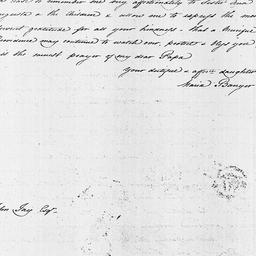 to remember me very affectionately to Sister Ann
Augusta & the Children & allow me to express the most
gratitude for all your kindness - that a merciful
Providence may continue to watch over, protect & bless you
is the sincerest prayer of my dear Papa
Your dutiful & affte daughter
Maria Banyer
John Jay Esqr